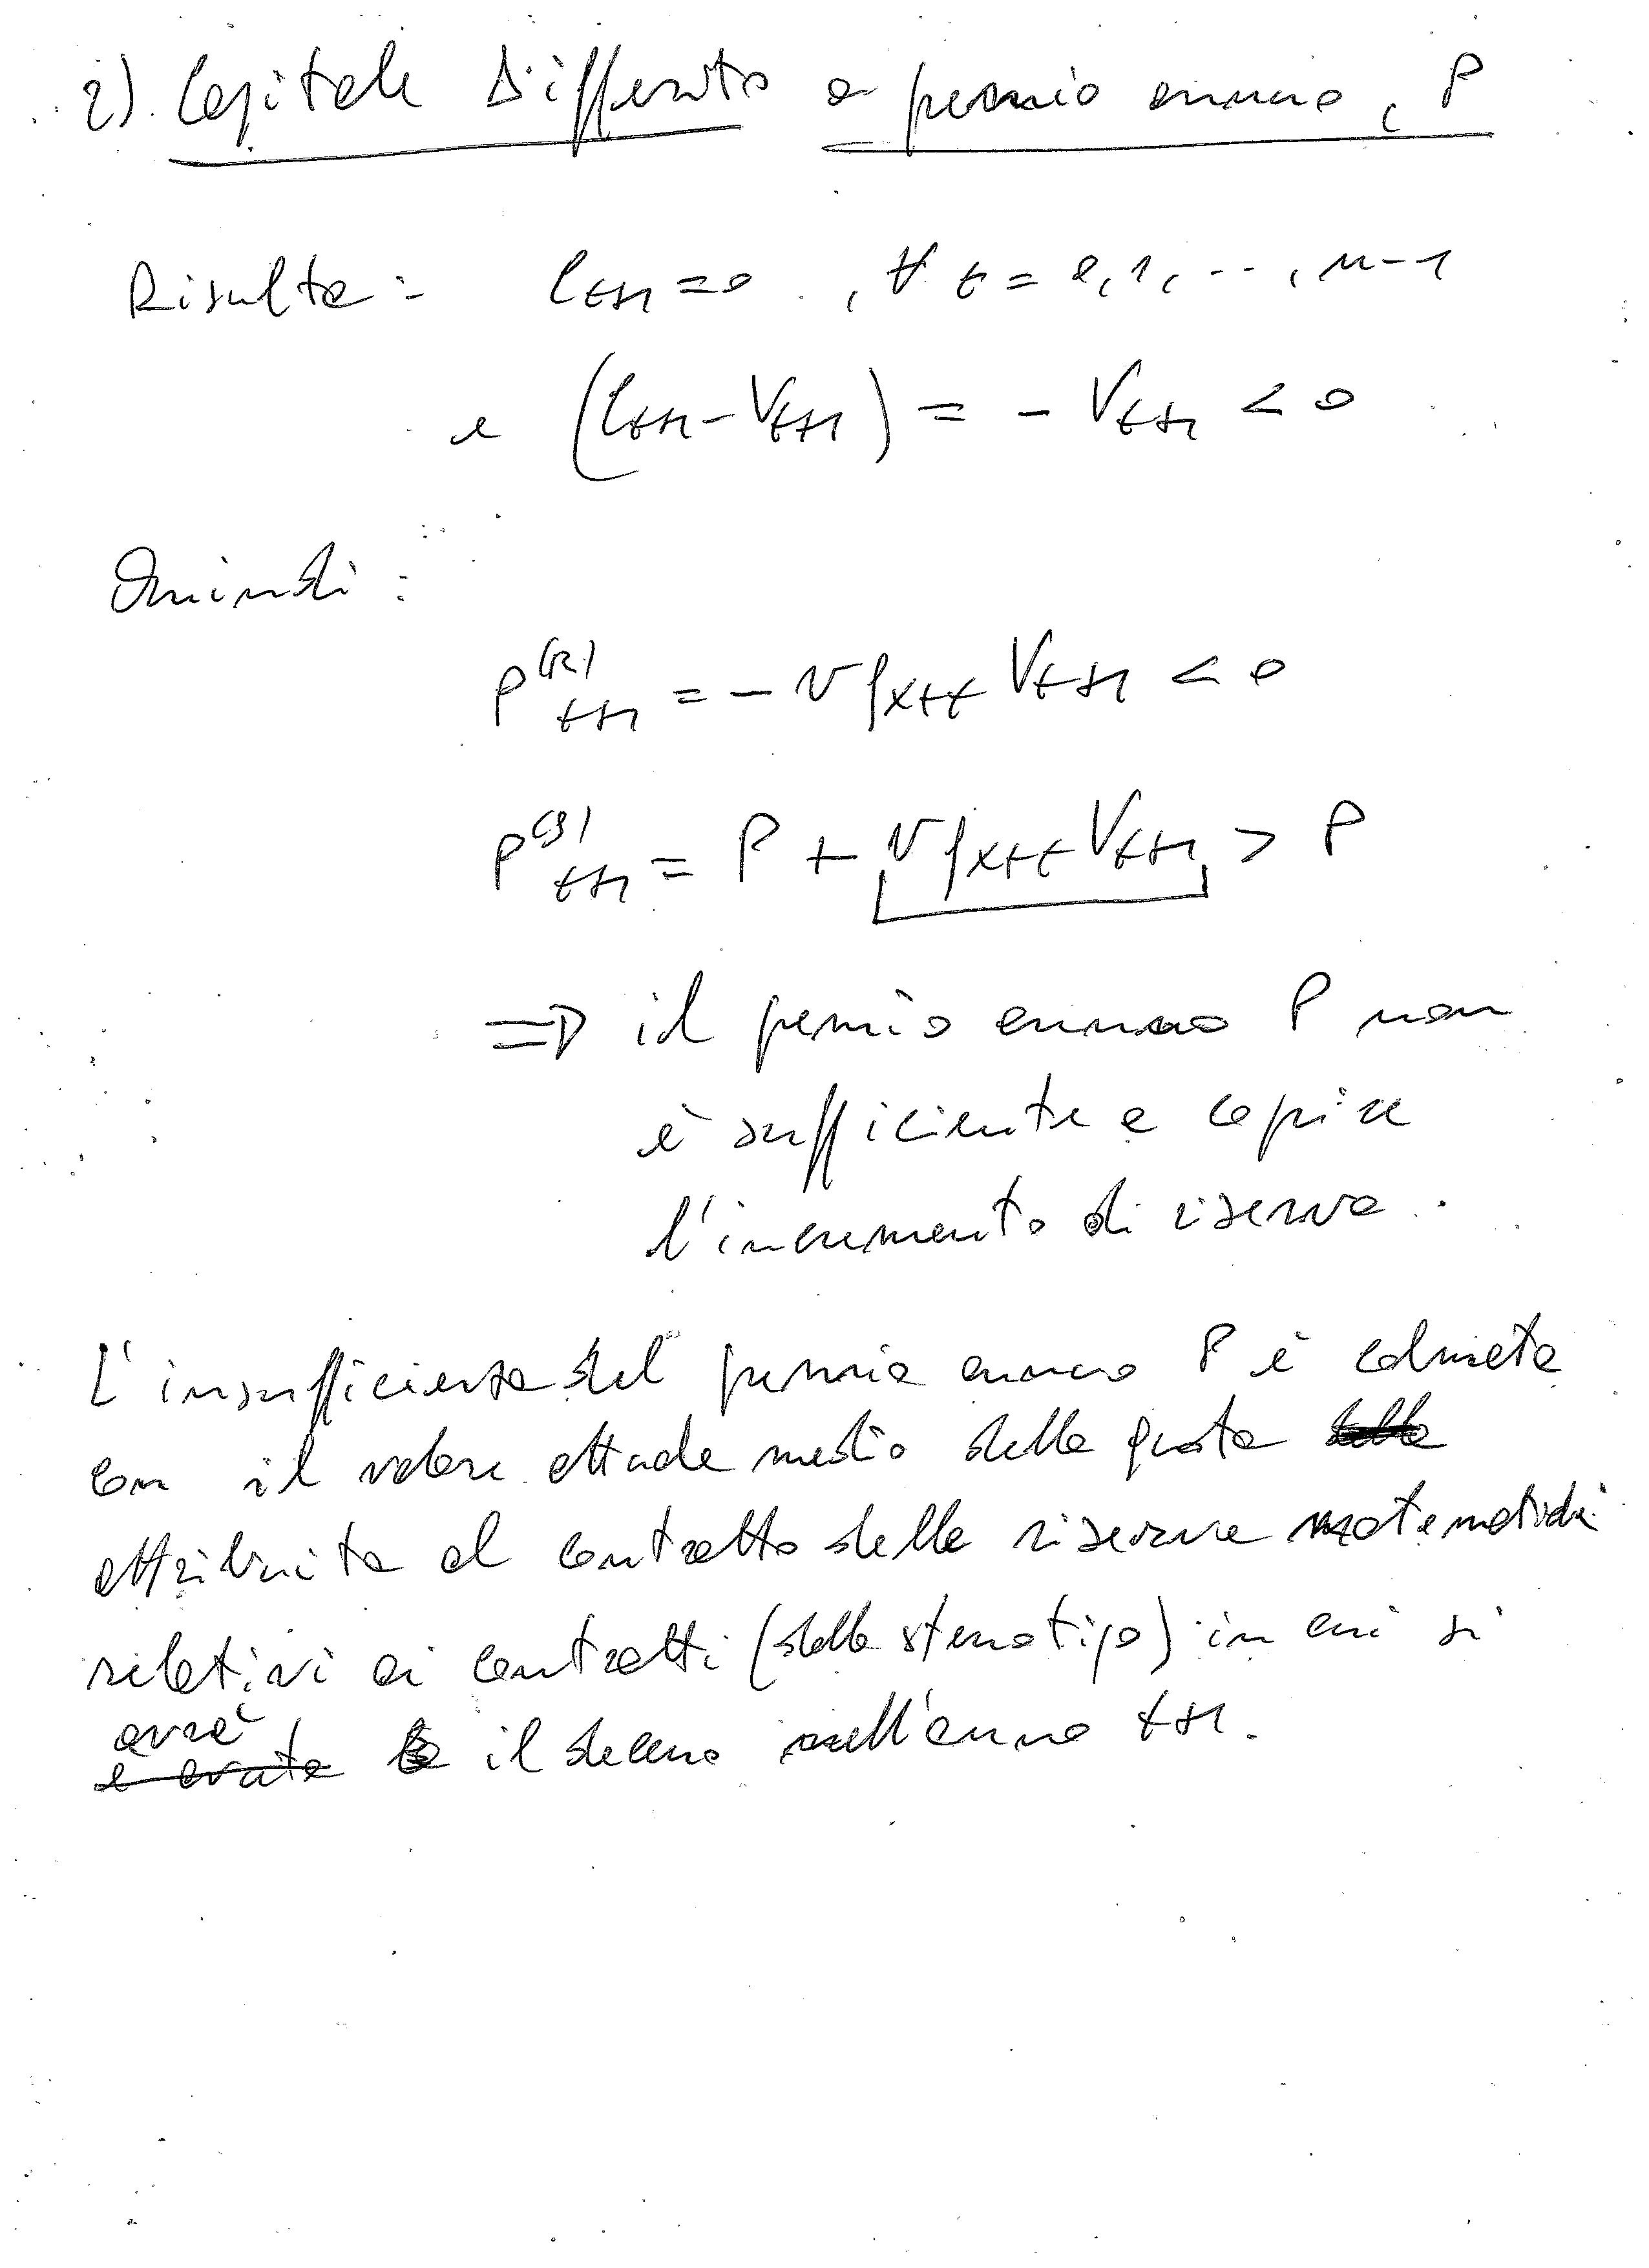 2) Capitale Differito a premio annuo, P
Risulta: C_{t+1} = 0, ∀ t = 0, 1, ..., n-1
e (C_{t+1} - V_{t+1}) = - V_{t+1} < 0
Quindi:
P^{(R)}_{t+1} = - v q_{x+t} V_{t+1} < 0
P^{(S)}_{t+1} = P + v q_{x+t} V_{t+1} > P
⇒ il premio annuo P non
è sufficiente a coprire
l'incremento di riserva.
L'insufficienza del premio annuo P è colmata
con il valore attuale medio della quota
attribuita al contratto delle riserve matematiche
relativi ai contratti (dello stesso tipo) in cui si
avrà
il decesso nell'anno t+1.